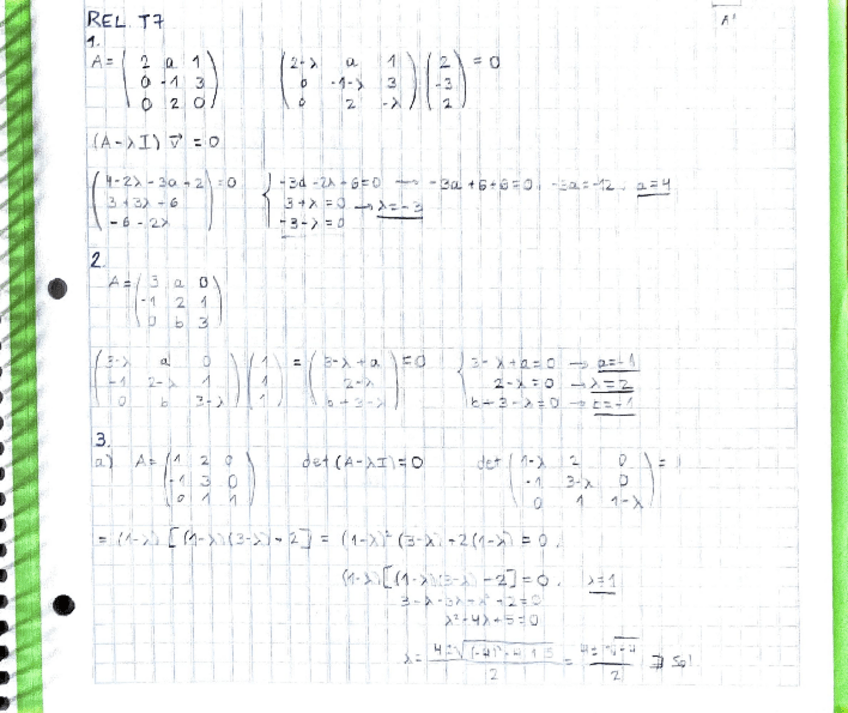 REL. T7
A'
1.
A = ( 2 a 1 ; 0 -1 3 ; 0 2 0 )    ( 2-λ a 1 ; 0 -1-λ 3 ; 0 2 -λ ) ( 2 ; -3 ; 2 ) = 0
(A - λI) v⃗ = 0
( 4-2λ-3a+2 ; 3+3λ+6 ; -6-2λ ) = 0    { -3a-2λ+6=0 → -3a+6+6=0, -3a=-12, a=4
3+λ=0 → λ=-3
-3-λ=0
2.
A = ( 3 a 0 ; -1 2 1 ; 0 b 3 )
( 3-λ a 0 ; -1 2-λ 1 ; 0 b 3-λ ) ( 1 ; 1 ; 1 ) = ( 3-λ+a ; 2-λ ; b+3-λ ) = 0    { 3-λ+a=0 → a=-1
2-λ=0 → λ=2
b+3-λ=0 → b=-1
3.
a) A = ( 1 2 0 ; -1 3 0 ; 0 1 1 )    det(A-λI)=0    det ( 1-λ 2 0 ; -1 3-λ 0 ; 0 1 1-λ ) =
= (1-λ) [(1-λ)(3-λ)+2] = (1-λ)² (3-λ) +2(1-λ) = 0.
(1-λ)[(1-λ)(3-λ)+2] = 0. λ=1
3-λ-3λ+λ²+2=0
λ²-4λ+5=0
λ = (4±√((-4)²-4·1·5))/2 = (4±√-4)/2 ∄ Sol.